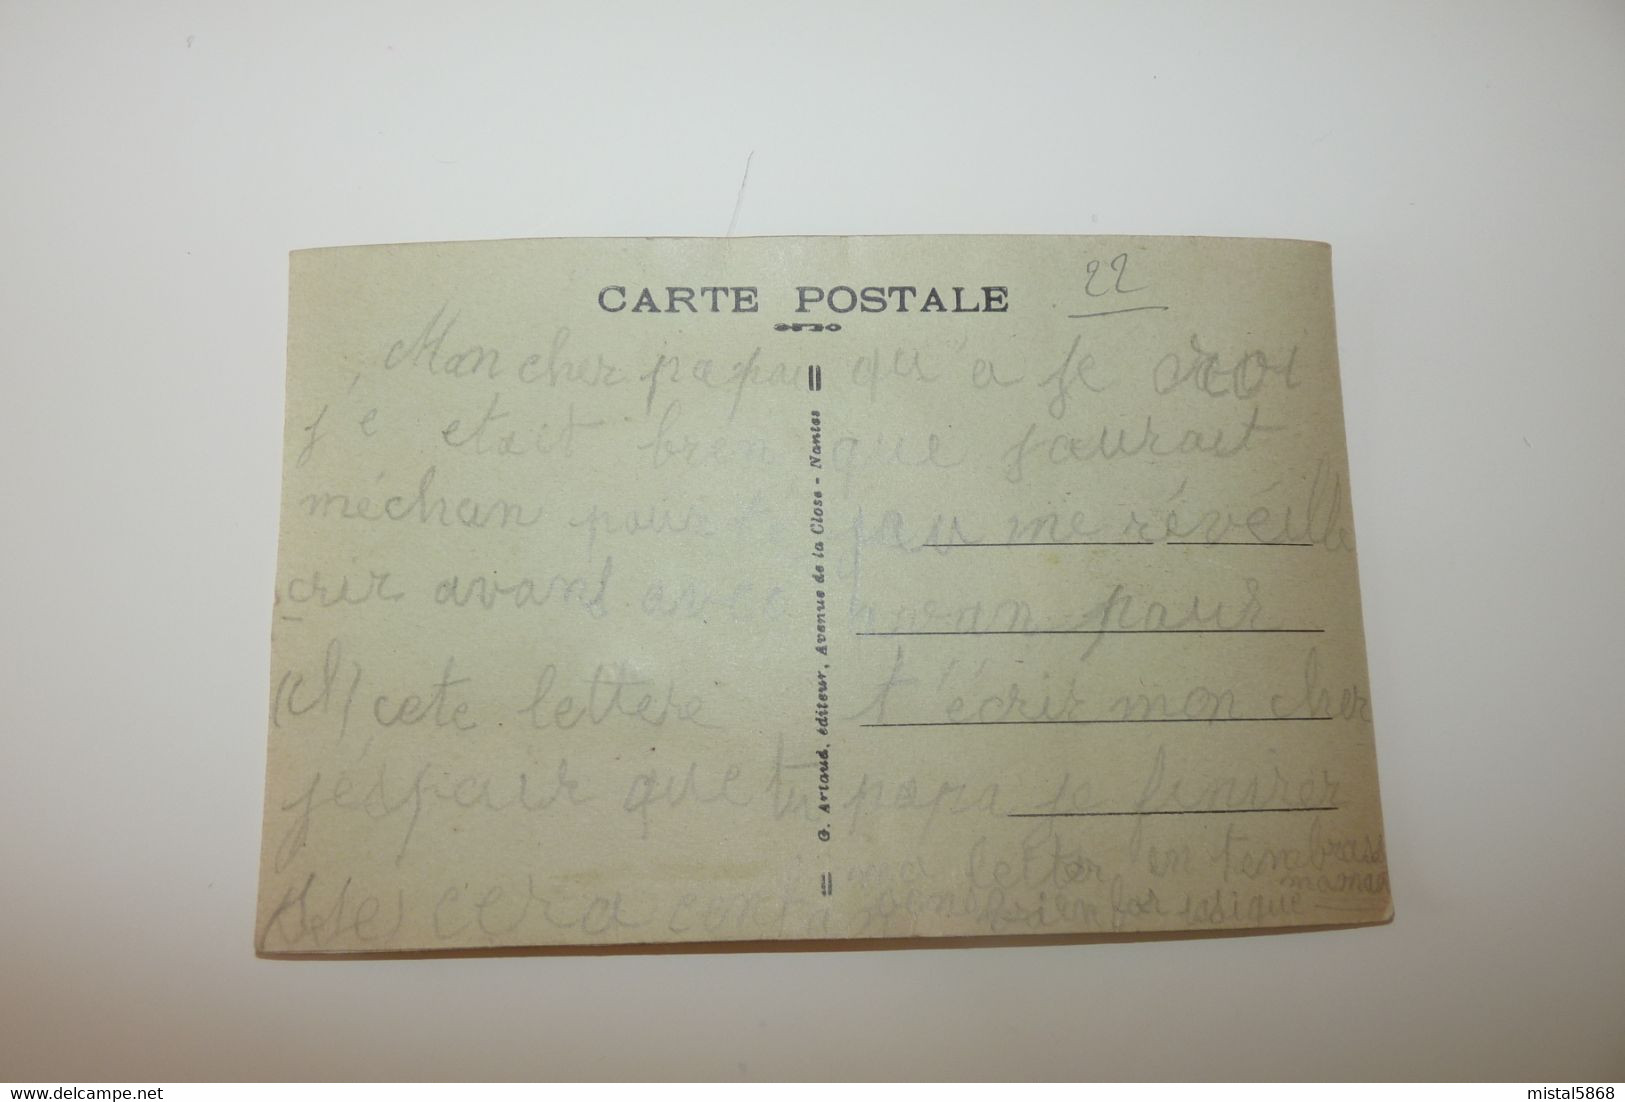 CARTE POSTALE
22
Mon cher papa qu'a je
j'e etait bien que j'aurait
méchan pour me réveille
crir avant avan pour
cete lettere t'écrir mon cher
j'éspair que tu papa je finirer
cera ma letter en tenbrass
bien maman
G. Artaud, éditeur, Avenue de la Close - Nantes
delcampe.net
mistal5868